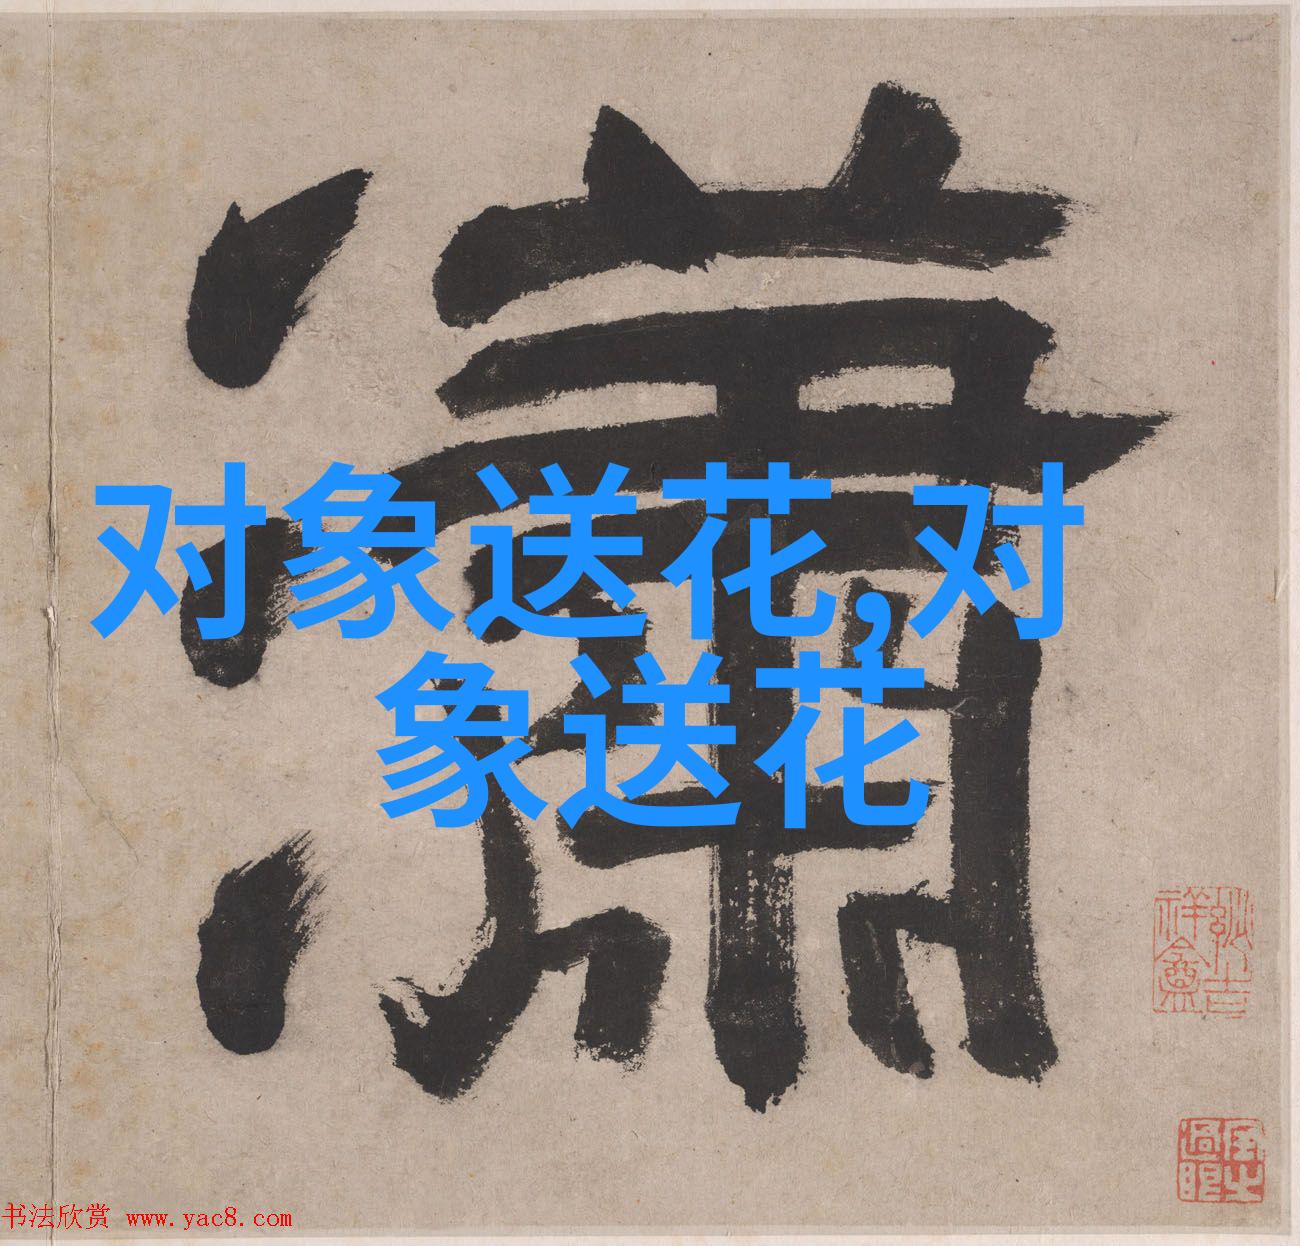 瀟
对象送花,对
象送花
书法欣赏 www.yac8.com